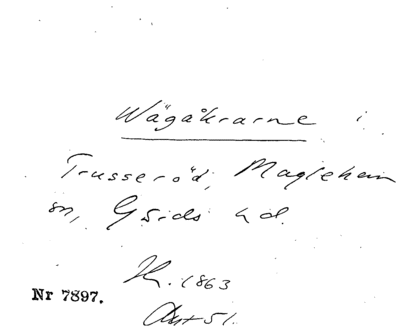 Wägåkrarne i
Trusseröd, Maglehem
sn, Gärds hd.
H. 1863
Nr 7897.
51.